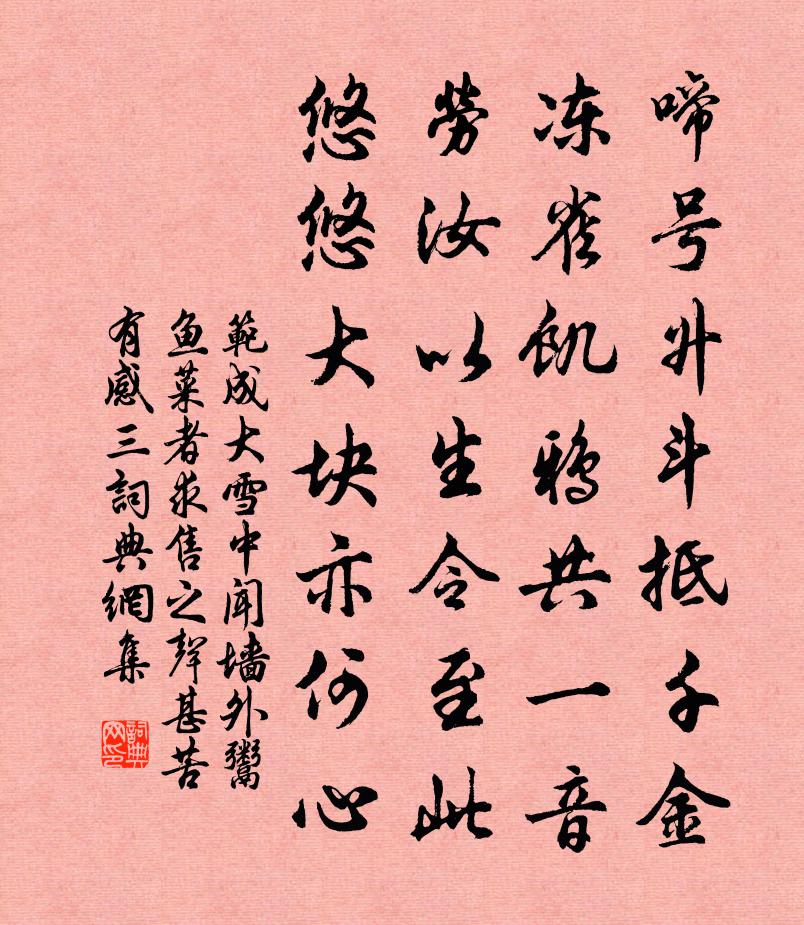 啼号升斗抵千金
冻雀饥鸦共一音
劳汝以生令至此
悠悠大块亦何心
範成大雪中闻墙外鬻
鱼菜者求售之聲甚苦
有感三詞典網集
詞典网印